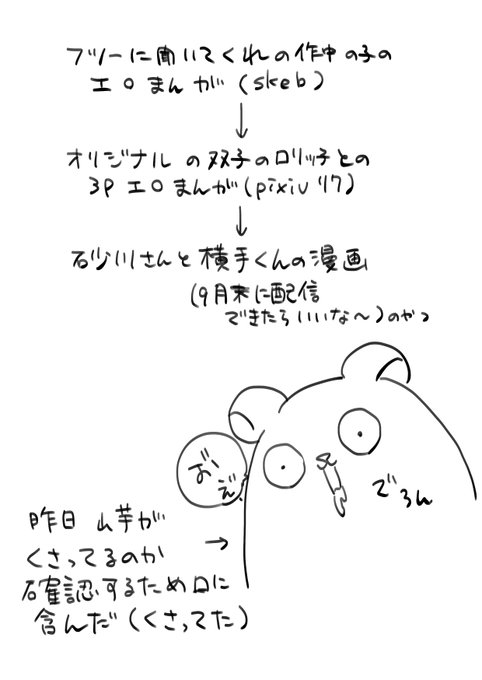 フツーに聞いてくれの作中の子の
エロまんが(skeb)
↓
オリジナルの双子のロリッ子との
3Pエロまんが(pixivリク)
↓
石沙川さんと横手くんの漫画
(9月末に配信
できたらいいな〜)のやつ
おぇ
でろん
昨日山芋が
くさってるのか
確認するため口に
含んだ(くさってた)
→